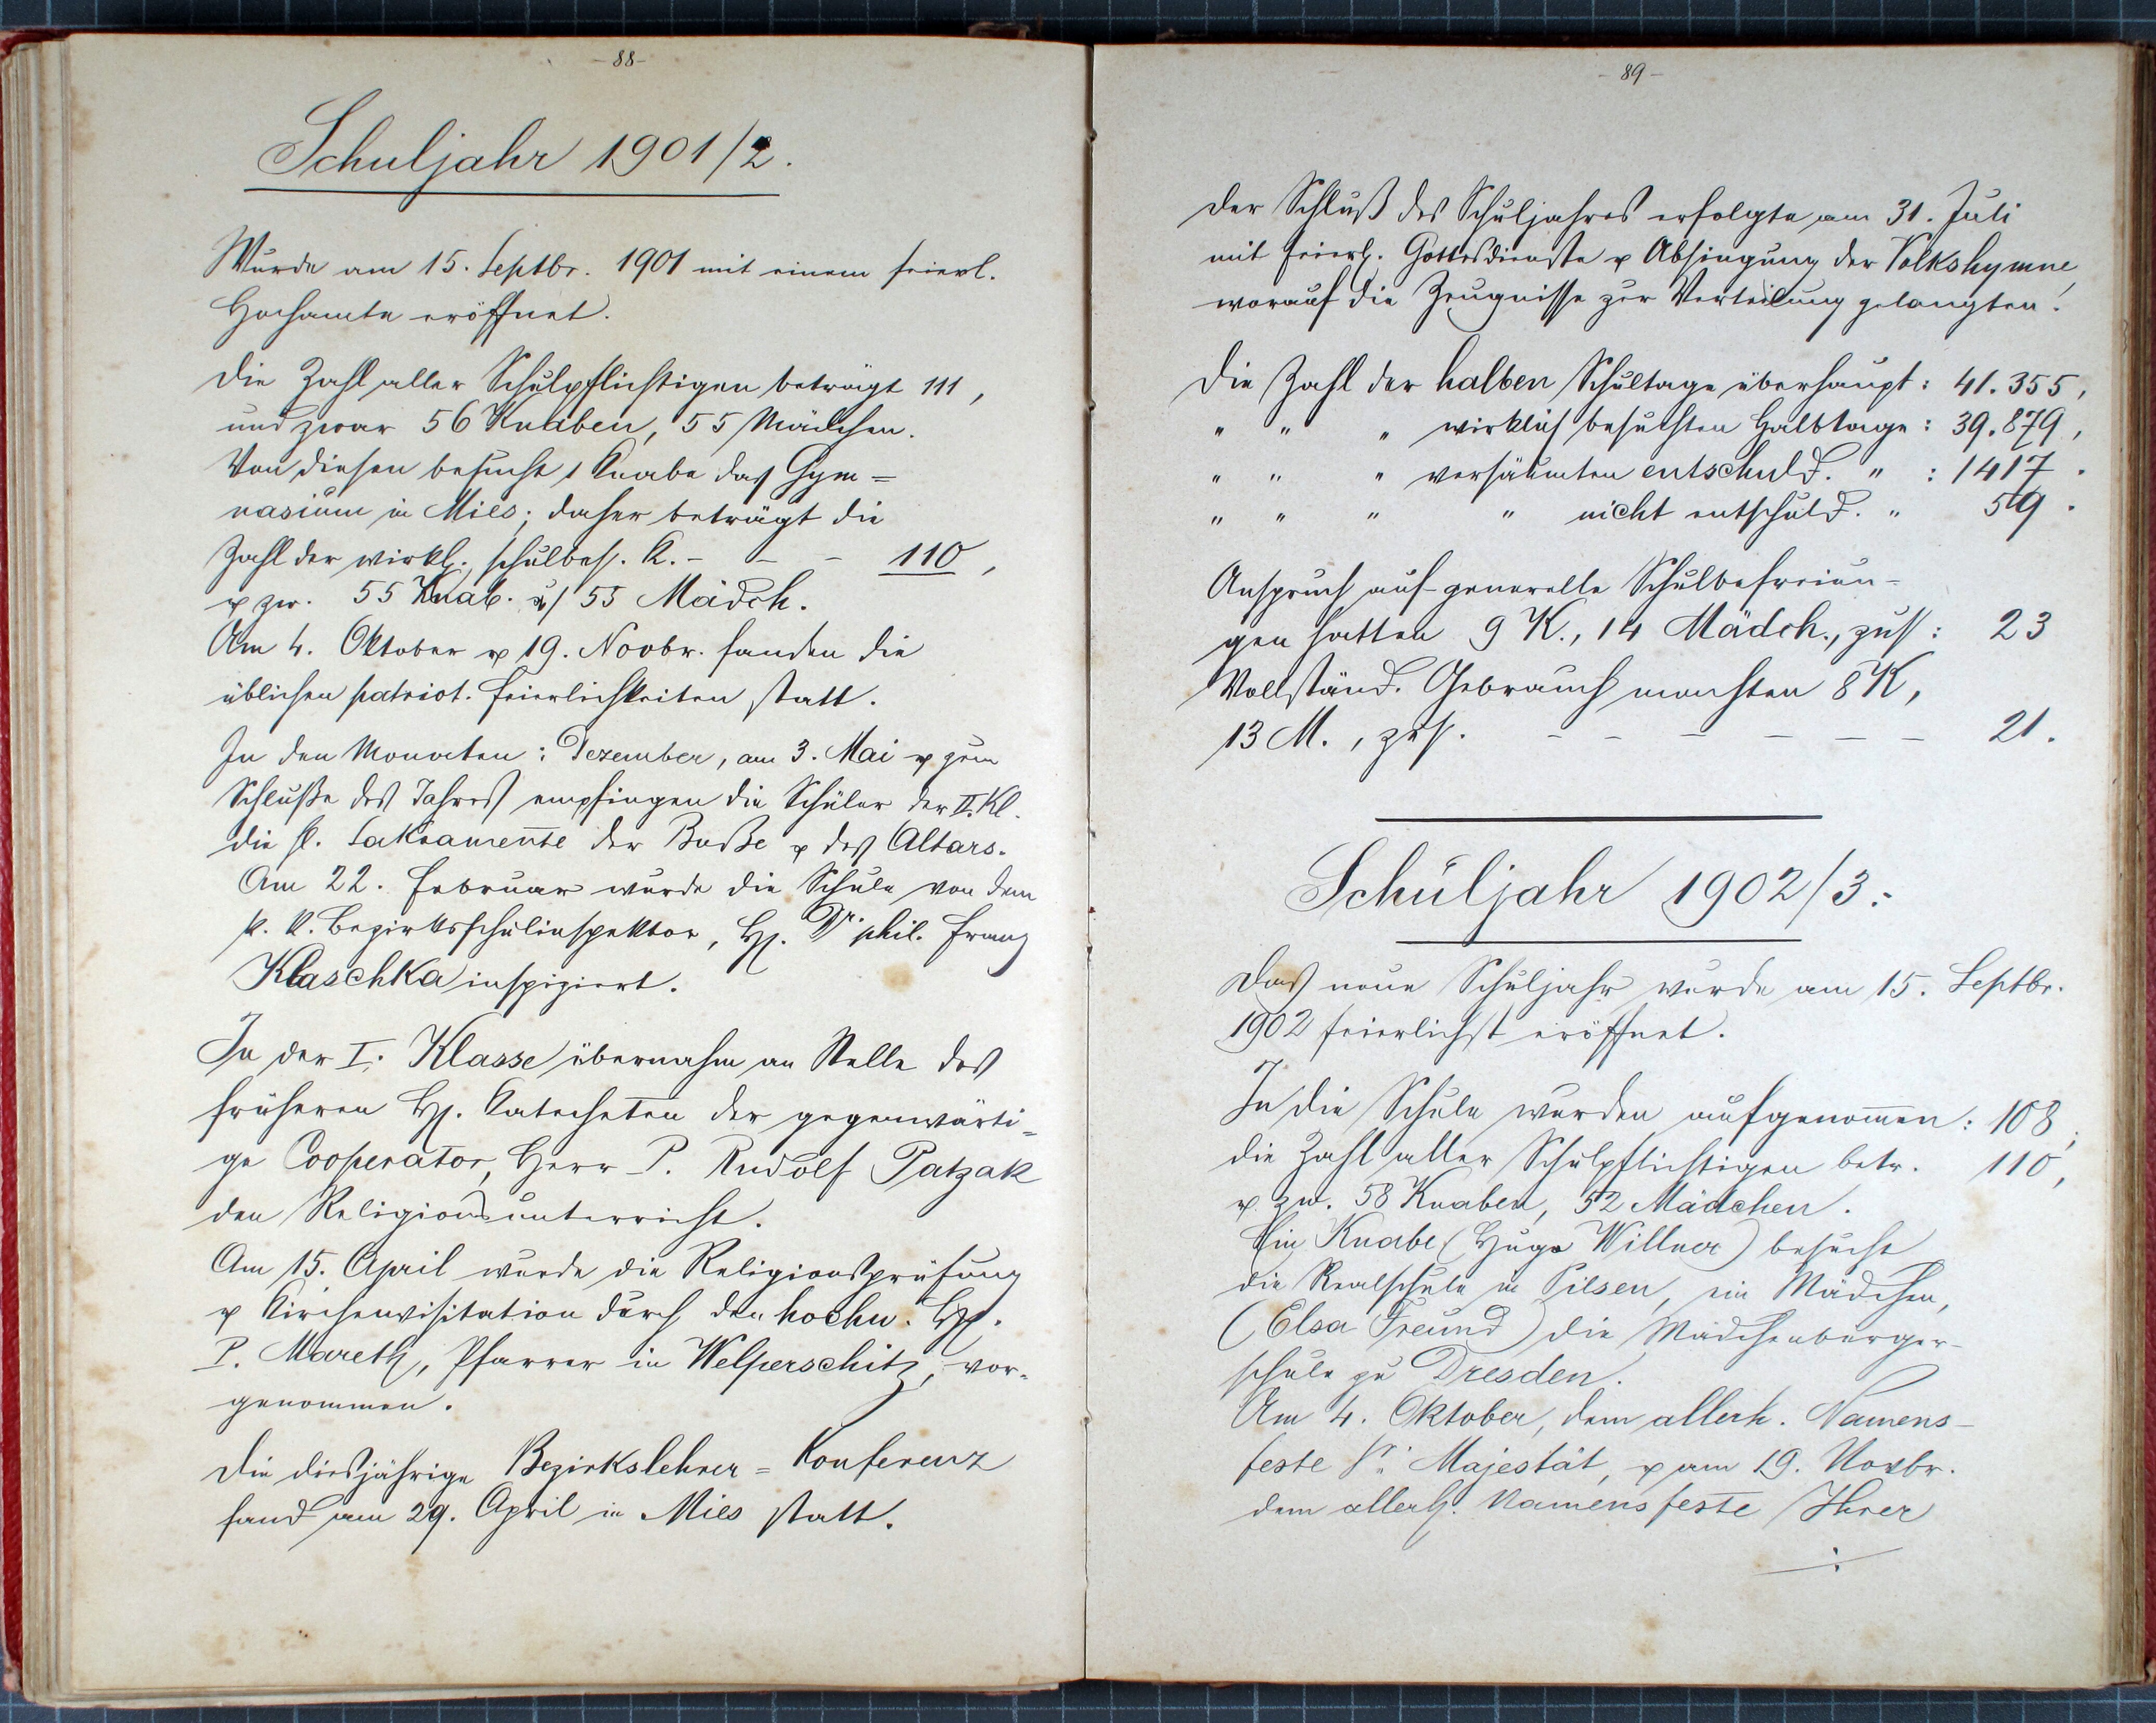 - 88 -
Schuljahr 1901/2.
Wurde am 15. Septbr. 1901 mit einem feierl.
Hochamte eröffnet.
Die Zahl aller Schulpflichtigen beträgt 111,
und zwar 56 Knaben, 55 Mädchen.
Von diesen besucht 1 Knabe das Gym=
nasium in Mies; daher beträgt die
Zahl der wirkl. schulbes. K. - - - 110,
u zw. 55 Knab. u/ 55 Mädch.
Am 4. Oktober u 19. Novbr. fanden die
üblichen patriot. Feierlichkeiten statt.
In den Monaten: Dezember, am 3. Mai u zum
Schluße des Jahres empfingen die Schüler der II. Kl.
die hl. Sakramente der Buße u des Altars.
Am 22. Februar wurde die Schule von dem
k. k. Bezirksschulinspektor, H. Dr. phil. Franz
Klaschka inspiziert.
In der I. Klasse übernahm an Stelle des
früheren H. Katecheten der gegenwärti=
ge Cooperator, Herr P. Rudolf Patzak
den Religionsunterricht.
Am 15. April wurde die Religionsprüfung
u Kirchenvisitation durch den hochw. H.
P. Mareth, Pfarrer in Welperschitz, vor=
genommen.
Die diesjährige Bezirkslehrer=Konferenz
fand am 29. April in Mies statt.
- 89 -
Der Schluß des Schuljahres erfolgte am 31. Juli
mit feierl. Gottesdienste u Absingung der Volkshymne,
worauf die Zeugnisse zur Verteilung gelangten.
Die Zahl der halben Schultage überhaupt: 41.355,
" " " wirklich besuchten Halbtage: 39.879,
" " " versäumten entschuld. " : 1417.
" " " " nicht entschuld. " 59.
Anspruch auf generelle Schulbefreiun-
gen hatten 9 K., 14 Mädch., zus: 23
Vollständ. Gebrauch machten 8 K,
13 M., zus. - - - - - - 21.
Schuljahr 1902/3.
Das neue Schuljahr wurde am 15. Septbr.
1902 feierlichst eröffnet.
In die Schule wurden aufgenom̄en: 108;
die Zahl aller Schulpflichtigen betr. 110,
u. zw. 58 Knaben, 52 Mädchen.
Ein Knabe (Hugo Willner) besucht
die Realschule in Pilsen, ein Mädchen,
(Elsa Freund) die Mädchenbürger-
schule zu Dresden.
Am 4. Oktober, dem allerh. Namens-
feste Sr. Majestät, u am 19. Novbr.
dem allerh. Namensfeste Ihrer